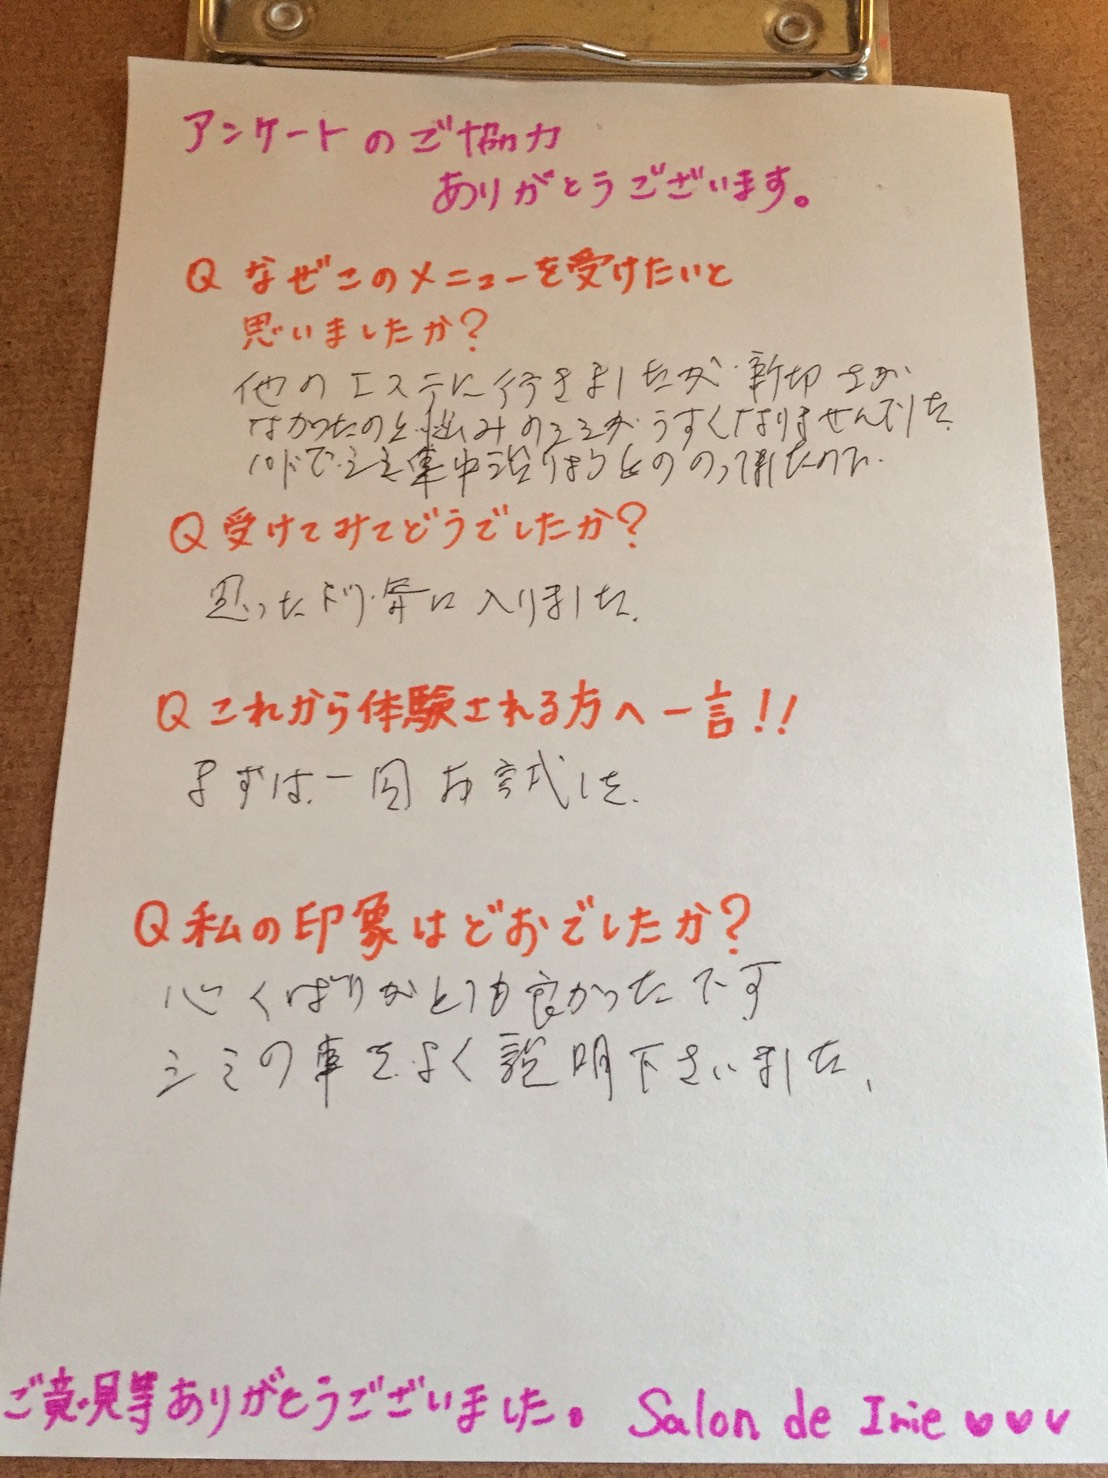 アンケートのご協力
ありがとうございます。
Q なぜこのメニューを受けたいと
思いましたか?
他のエステに行きましたが、親切さが
なかったのと悩みのシミがうすくなりませんでした。
シミ専中
Q 受けてみてどうでしたか?
思ったより気に入りました。
Q これから体験される方へ一言!!
まずは、一回お試しを。
Q 私の印象はどおでしたか?
心くばりがとても良かったです
シミの事をよく説明下さいました。
ご意見等ありがとうございました。 Salon de Irie ♥♥♥